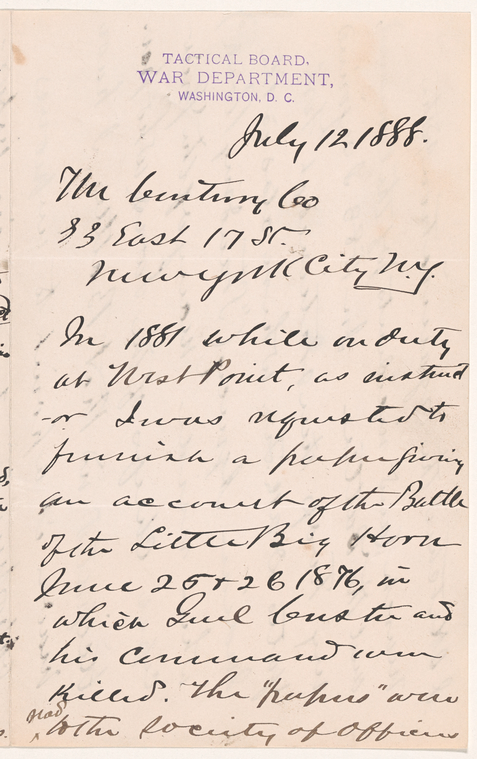 TACTICAL BOARD,
WAR DEPARTMENT,
WASHINGTON, D. C.
July 12 1888.
The Century Co
33 East 17 St.
New York City N.Y.
In 1881 while on duty
at West Point, as instruct
-or I was requested to
furnish a paper giving
an account of the Battle
of the Little Big Horn
June 25 & 26 1876, in
which Genl Custer and
his command were
killed. The "papers" were
read
to the Society of Officers